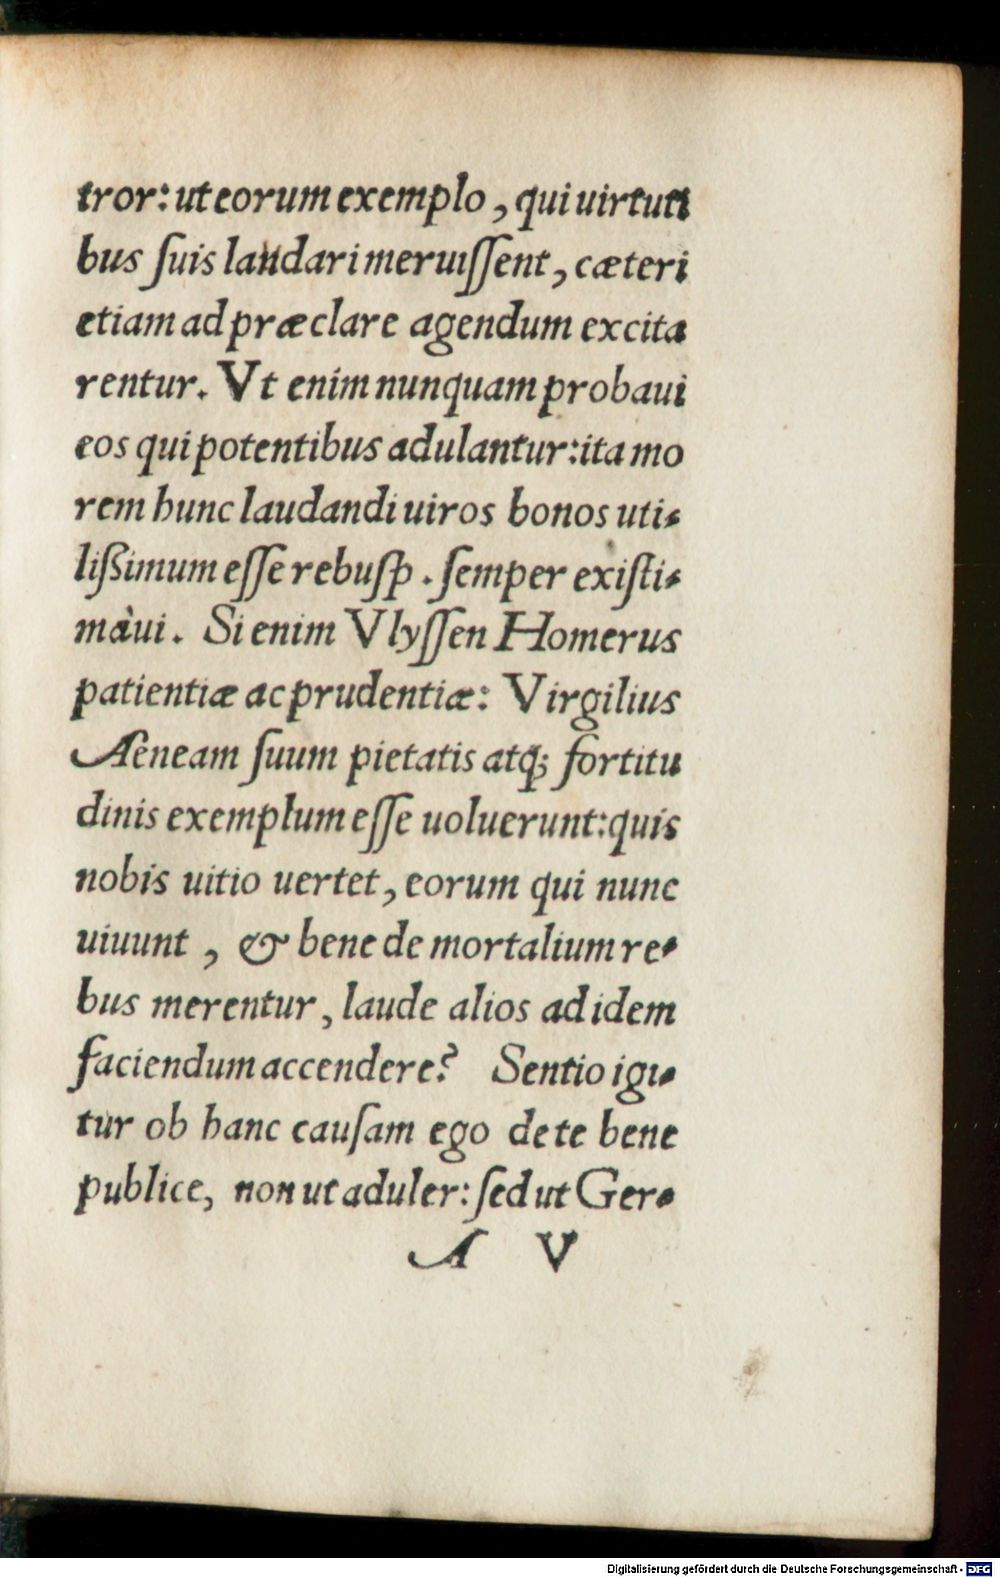 tror: ut eorum exemplo, qui uirtuti
bus ſuis laudari meruiſſent, cæteri
etiam ad præclare agendum excita
rentur. Vt enim nunquam probaui
eos qui potentibus adulantur: ita mo
rem hunc laudandi uiros bonos uti-
lißimum eſſe rebuſꝑ. ſemper exiſti-
màui. Si enim Vlyſſen Homerus
patientiæ ac prudentiæ: Virgilius
Aeneam ſuum pietatis atq; fortitu
dinis exemplum eſſe uoluerunt: quis
nobis uitio uertet, eorum qui nunc
uiuunt, & bene de mortalium re-
bus merentur, laude alios ad idem
faciendum accendere? Sentio igi-
tur ob hanc cauſam ego de te bene
publice, non ut aduler: ſed ut Ger-
A V
Digitalisierung gefördert durch die Deutsche Forschungsgemeinschaft - DFG